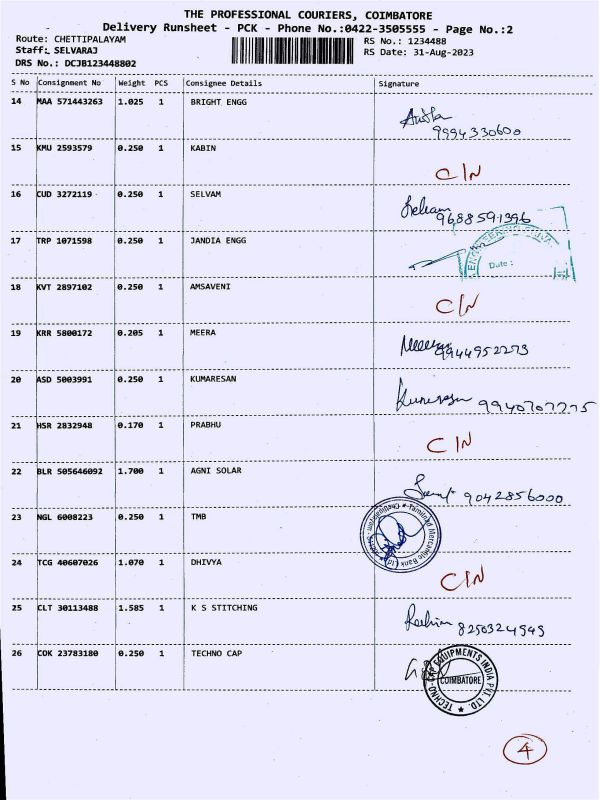 THE PROFESSIONAL COURIERS, COIMBATORE
Delivery Runsheet - PCK - Phone No.:0422-3505555 - Page No.:2
Route: CHETTIPALAYAM RS No.: 1234488
Staff: SELVARAJ RS Date: 31-Aug-2023
DRS No.: DCJB123448802
S No Consignment No Weight PCS Consignee Details Signature
14 MAA 571443263 1.025 1 BRIGHT ENGG
9994330600
15 KMU 2593579 0.250 1 KABIN
C/N
16 CUD 3272119 0.250 1 SELVAM
9688591396
17 TRP 1071598 0.250 1 JANDIA ENGG
ENGINEERING
Date :
18 KVT 2897102 0.250 1 AMSAVENI
C/N
19 KRR 5800172 0.205 1 MEERA
9944952273
20 ASD 5003991 0.250 1 KUMARESAN
9940707275
21 HSR 2832948 0.170 1 PRABHU
C/N
22 BLR 505646092 1.700 1 AGNI SOLAR
9042856000
23 NGL 6008223 0.250 1 TMB
Tamilnad Mercantile Bank Ltd
24 TCG 40607026 1.070 1 DHIVYA
C/N
25 CLT 30113488 1.585 1 K S STITCHING
8250324949
26 COK 23783180 0.250 1 TECHNO CAP
TECHNO-CAP EQUIPMENTS INDIA PVT. LTD.
COIMBATORE
4